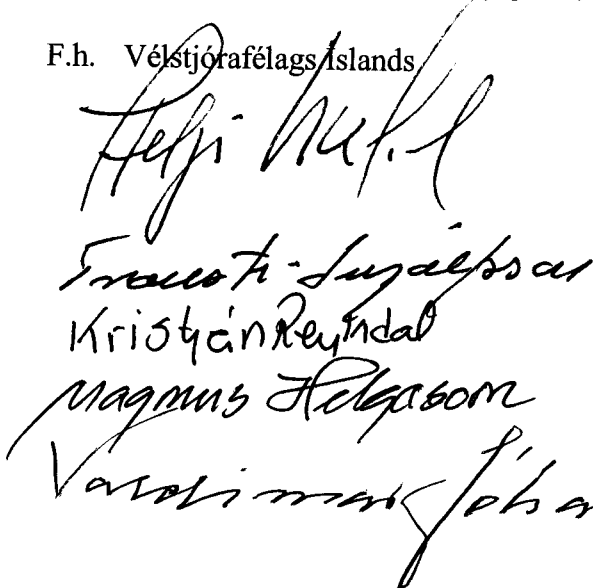 F.h. Vélstjórafélags Íslands
Helgi
Kristján Reyndal
Magnus Helgason
Valdimar Jóha